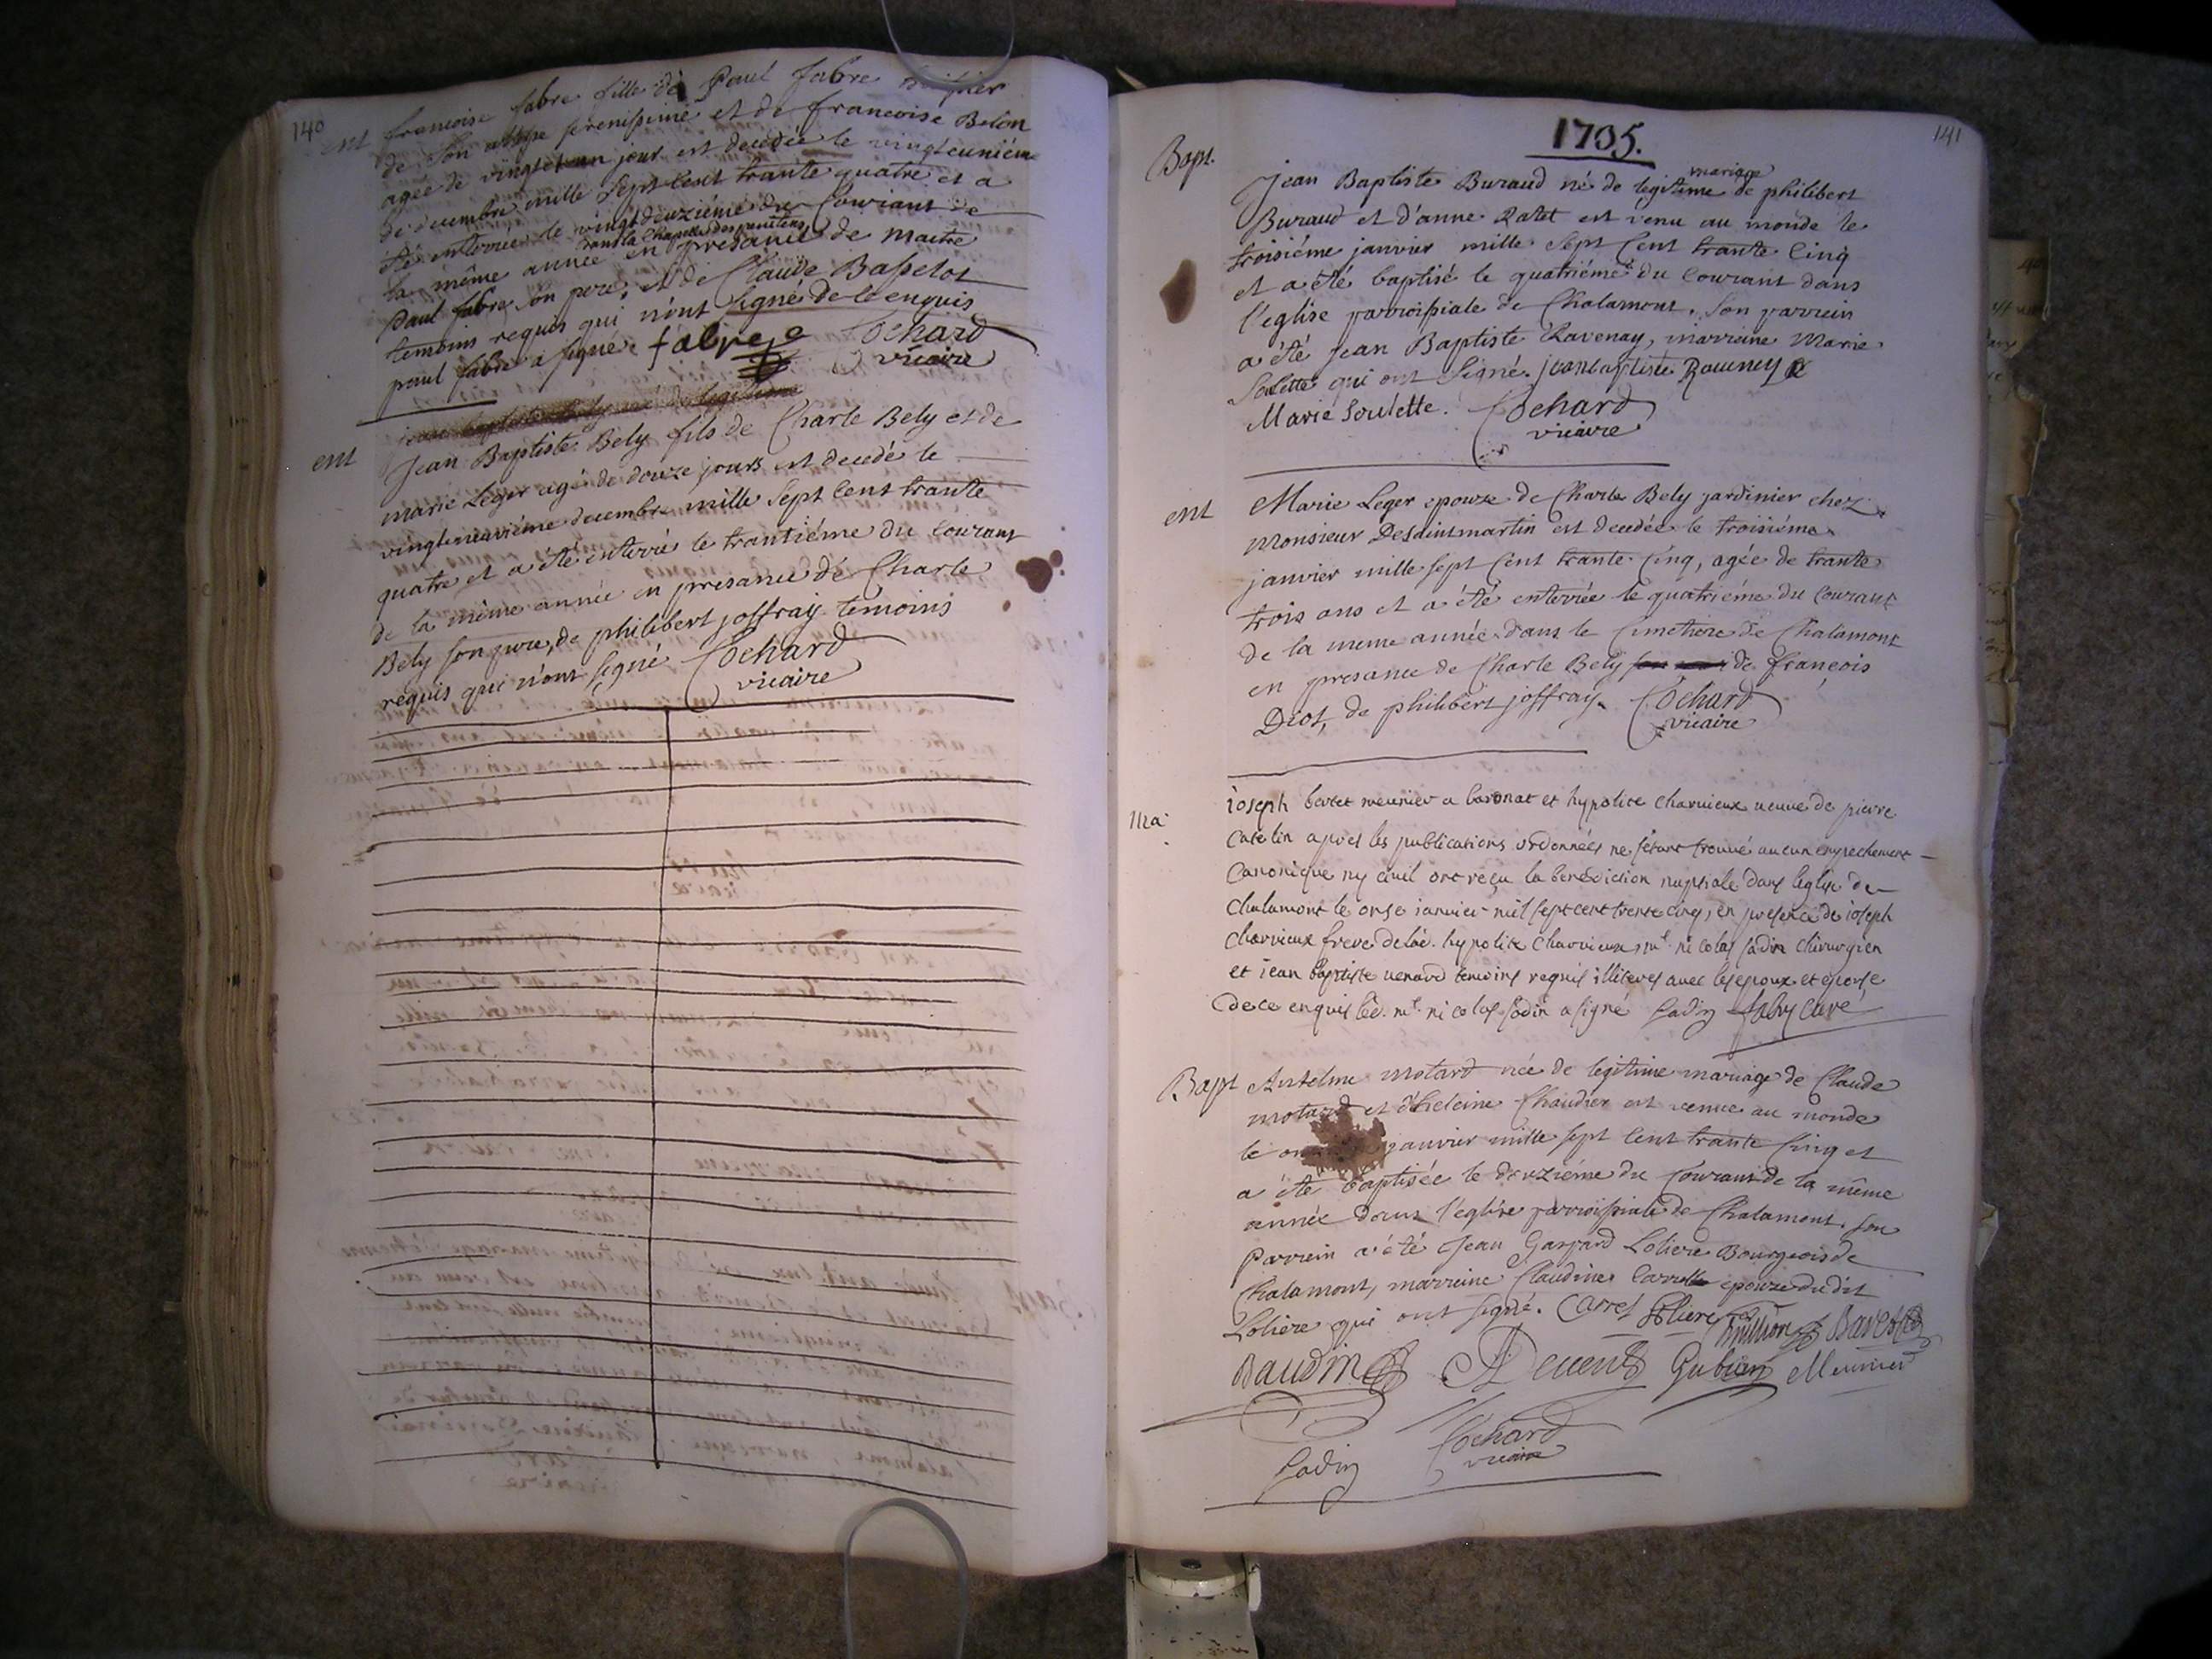 140
ent françoise fabre fille de Paul fabre huissier
de son altesse serenissime et de françoise Belon
agée de vingt et un jour est decedée le vingteunième
de decembre mille sept cent trante quatre et a
été enterrée le vingtdeuzième du Courant de
dans la Chapelle des penitens
la même année en presance de maitre
paul fabre son pere, et de Claude Basselot
temoins requis qui n'ont signé de ce enquis
paul fabre a signé. fabre Cochard
vicaire
jean baptiste Bely né de legitime
ent Jean Baptiste Bely fils de Charle Bely et de
marie Leger agé de douze jours est decedé le
vingtneuvième decembre mille sept cent trante
quatre et a été enterré le trantiéme du courant
de la même année en presance de Charle
Bely son pere, de philibert joffray temoins
requis qui n'ont signé Cochard
vicaire
141
1735.
Bapt.
mariage
Jean Baptiste Buraud né de legitime de philibert
Buraud et d'anne Ratet est venu au monde le
troisiéme janvier mille sept Cent trante Cinq
et a été baptisé le quatriéme du Courant dans
l'eglise parroissiale de Chalamont. son parrein
a été jean Baptiste Ravenay, marreine Marie
Soulette qui ont signé. jean baptiste Raveney
Marie Soulette. Cochard
vicaire
ent Marie Leger epouze de Charle Bely jardinier chez
Monsieur Desaintmartin est decedée le troisiéme
janvier mille sept Cent trante Cinq, agée de trante
trois ans et a été enterrée le quatriéme du Courant
de la meme année dans le Cimetiere de Chalamont
en presance de Charle Bely de françois
Diot, de philibert joffray. Cochard
vicaire
Ma. ioseph bertet meunier a baronat et hypolite charvieux veuve de pierre
Catelin apres les publications ordonnées ne s'etant trouvé aucun enpechement
Canonique ny civil ont reçu la benediction nuptiale dans leglise de
Chalamont le onse ianvier mil sept cent trente cinq, en presence de ioseph
Charvieux frere de lad. hypolite Charvieux, mt. nicolas sadin chirurgien
et iean baptiste venard temoins requis illiteres avec les epoux et epouse
de ce enquis led. mt. nicolas sadin a signé Sadin faby curé
Bapt Antelme motard née de legitime mariage de Claude
motard et d'heleine Chaudier est venue au monde
le janvier mille sept Cent trante Cinq et
a été baptisée le douziéme du Courant de la même
année dans l'eglise parroissiale de Chalamont. son
parrein a été Jean Gaspard Loliere Bourgeois de
Chalamont, marreine Claudine epouze dudit
Loliere qui ont signé. Carrel Loliere million
Baudin Gubian Meunier
Cochard
Sadin vicaire